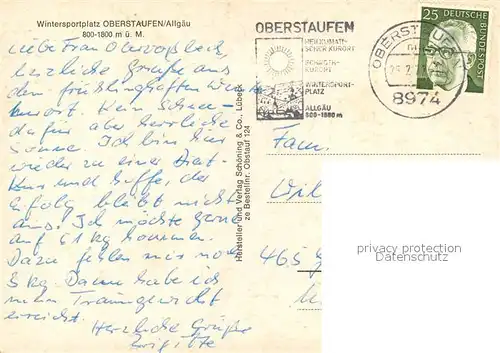 Wintersportplatz OBERSTAUFEN/Allgäu
800-1800 m ü. M.
Liebe Frau
herzliche Grüße aus
dem frühlingshaften
kurort. Kein Schnee -
dafür aber herrliche
Sonne. Ich bin hier
wieder zu einer Diät-
Kur und hoffe, der
Erfolg bleibt nicht
aus. Ich möchte gern
auf 61 kg kommen.
Dazu fehlen mir noch
3 kg. Dann habe ich
mein Traumgewicht
erreicht.
Herzliche Grüße
Brigitte
Hersteller und Verlag Schöning & Co., Lübeck
ze Bestellnr. Obstauf 124
OBERSTAUFEN
HEILKLIMATI-
SCHER KURORT
SCHROTH-
KURORT
WINTERSPORT-
PLATZ
ALLGÄU
800-1800 m
OBERSTAUFEN
8974
25
DEUTSCHE
BUNDESPOST
Fam.
465
privacy protection
privacy protection